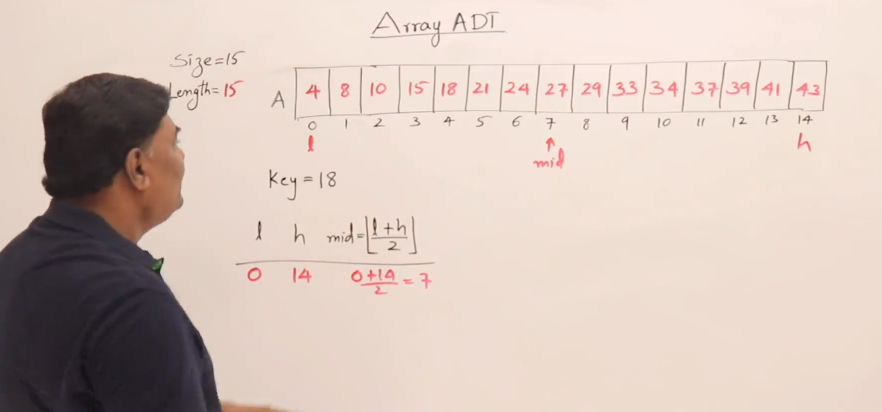 Array ADT
Size=15
Length=15
A 4 8 10 15 18 21 24 27 29 33 34 37 39 41 43
0 1 2 3 4 5 6 7 8 9 10 11 12 13 14
l ↑ h
mid
Key=18
l h mid=⌊l+h/2⌋
0 14 0+14/2=7